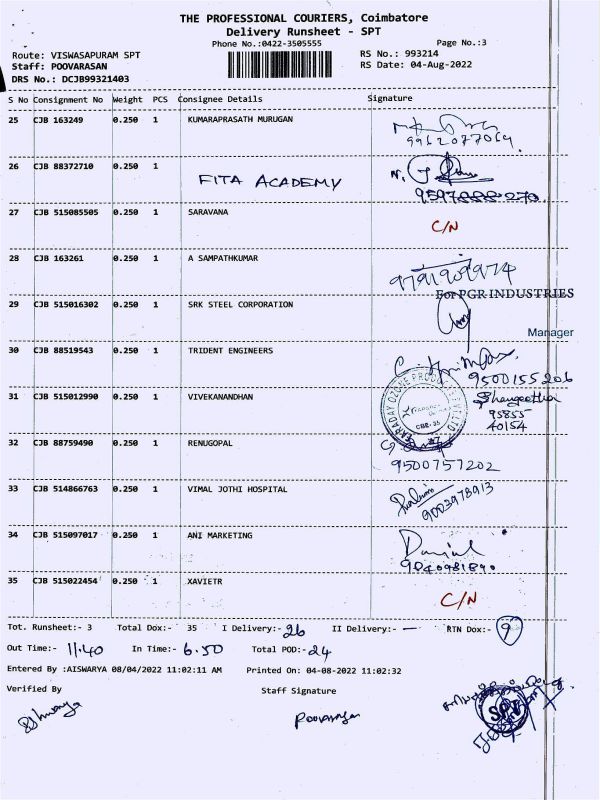 THE PROFESSIONAL COURIERS, Coimbatore
Delivery Runsheet - SPT
Phone No.:0422-3505555
Page No.:3
Route: VISWASAPURAM SPT
RS No.: 993214
Staff: POOVARASAN
RS Date: 04-Aug-2022
DRS No.: DCJB99321403
S No Consignment No Weight PCS Consignee Details Signature
25 CJB 163249 0.250 1 KUMARAPRASATH MURUGAN
9962077069
26 CJB 88372710 0.250 1 FITA ACADEMY
27 CJB 515085505 0.250 1 SARAVANA C/N
28 CJB 163261 0.250 1 A SAMPATHKUMAR
9791909974
For PGR INDUSTRIES
29 CJB 515016302 0.250 1 SRK STEEL CORPORATION
Manager
30 CJB 88519543 0.250 1 TRIDENT ENGINEERS
9500155206
31 CJB 515012990 0.250 1 VIVEKANANDHAN
FARADAY OZONE PRODUCTS PVT LTD
CBE-35
Shangeetha
95855
40154
32 CJB 88759490 0.250 1 RENUGOPAL
9500757202
33 CJB 514866763 0.250 1 VIMAL JOTHI HOSPITAL
9003978913
34 CJB 515097017 0.250 1 ANI MARKETING
Danial
9840981890
35 CJB 515022454 0.250 1 XAVIETR C/N
Tot. Runsheet:- 3 Total Dox:- 35 I Delivery:- 26 II Delivery:- — RTN Dox:- 9
Out Time:- 11.40 In Time:- 6.50 Total POD:- 24
Entered By :AISWARYA 08/04/2022 11:02:11 AM Printed On: 04-08-2022 11:02:32
Verified By Staff Signature
Poovarasan
SPT